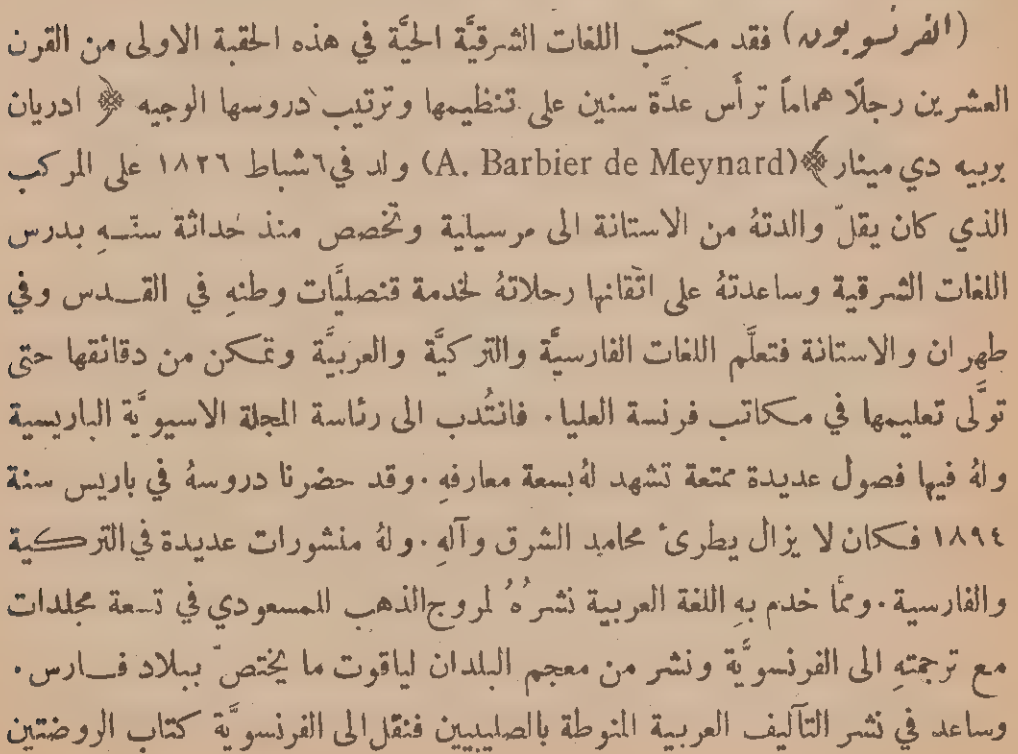 (الفرنسويون) فقد مكتب اللغات الشرقيَّة الحيَّة في هذه الحقبة الاولى من القرن
العشرين رجلًا هماماً ترأَس عدَّة سنين على تنظيمها وترتيب دروسها الوجيه ﴿ ادريان
بربيه دي مينار ﴾ (A. Barbier de Meynard) ولد في ٦ شباط ١٨٢٦ على المركب
الذي كان يقلّ والدتهُ من الاستانة الى مرسيلية وتخصص منذ حداثة سنّــهِ بدرس
اللغات الشرقية وساعدتهُ على اتّقانها رحلاتهُ لخدمة قنصليَّات وطنهِ في القــدس وفي
طهران والاستانة فتعلَّم اللغات الفارسيَّة والتركيَّة والعربيَّة وتمكن من دقائقها حتى
تولَّى تعليمها في مكاتب فرنسة العليا. فانتُدب الى رئاسة المجلة الاسيويَّة الباريسية
ولهُ فيها فصول عديدة ممتعة تشهد لهُ بسعة معارفهِ. وقد حضرنا دروسهُ في باريس سنة
١٨٩٤ فكان لا يزال يطرئُ محامد الشرق وآلهِ. ولهُ منشورات عديدة في التركية
والفارسية. وممَّا خدم بهِ اللغة العربية نشرُهُ لمروج الذهب للمسعودي في تسعة مجلدات
مع ترجمتهِ الى الفرنسويَّة ونشر من معجم البلدان لياقوت ما يختصّ ببلاد فــارس.
وساعد في نشر التآليف العربية المنوطة بالصليبيين فنقل الى الفرنسويَّة كتاب الروضتين